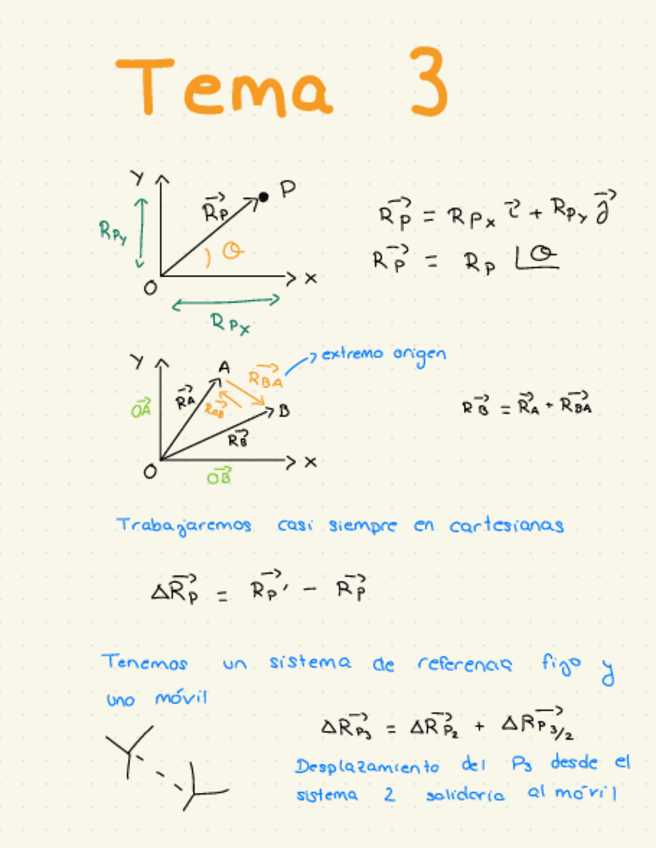 Tema 3
Y
P
R⃗p
Rpy
θ
O
X
Rpx
R⃗p = Rpx i⃗ + Rpy j⃗
R⃗p = Rp ∟θ
Y
A
R⃗BA
extremo origen
O⃗A
R⃗A
R⃗AB
B
R⃗B
O
X
O⃗B
R⃗B = R⃗A + R⃗BA
Trabajaremos casi siempre en cartesianas
ΔR⃗p = R⃗p' - R⃗p
Tenemos un sistema de referencia fijo y
uno móvil
ΔR⃗P₃ = ΔR⃗P₂ + ΔR⃗P₃/₂
Desplazamiento del P₃ desde el
sistema 2 solidería al móvil